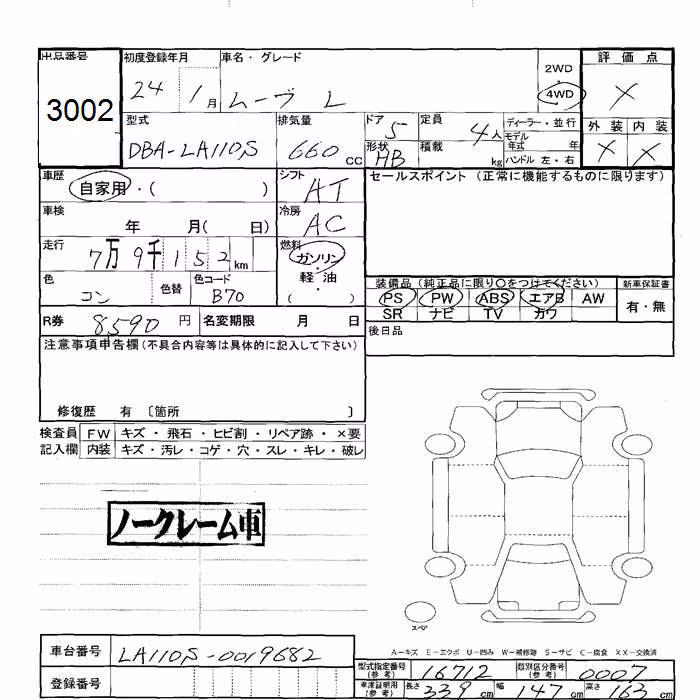 出品番号 初度登録年月 車名・グレード 評価点
3002 24 1月 ムーヴ L 2WD 4WD ×
型式 排気量 ドア 5 定員 4人 ディーラー・並行 外装 内装
DBA-LA110S 660cc 形状 HB 積載 kg モデル年式 年 × ×
ハンドル 左・右
車歴 シフト セールスポイント (正常に機能するものに限ります)
自家用・( ) AT
車検 年 月( 日) 冷房 AC
走行 7万9千152km 燃料 ガソリン・軽油 ( )
色 コン 色替 色コード B70
装備品 (純正品に限り○をつけてください) 新車保証書
PS PW ABS エアB AW 有・無
SR ナビ TV カワ
R券 8590円 名変期限 月 日 後日品
注意事項申告欄 (不具合内容等は具体的に記入して下さい)
修復歴 有 〔箇所 〕
検査員 FW キズ・飛石・ヒビ割・リペア跡・×要
記入欄 内装 キズ・汚レ・コゲ・穴・スレ・キレ・破レ
ノークレーム車
スペア
A-キズ E-エクボ U-凹み W-補修跡 S-サビ C-腐食 XX-交換済
車台番号 LA110S-0019682
型式指定番号 (参考) 16712 類別区分番号 (参考) 0007
登録番号 車庫証明用 (参考) 長さ 339cm 幅 147cm 高さ 163cm